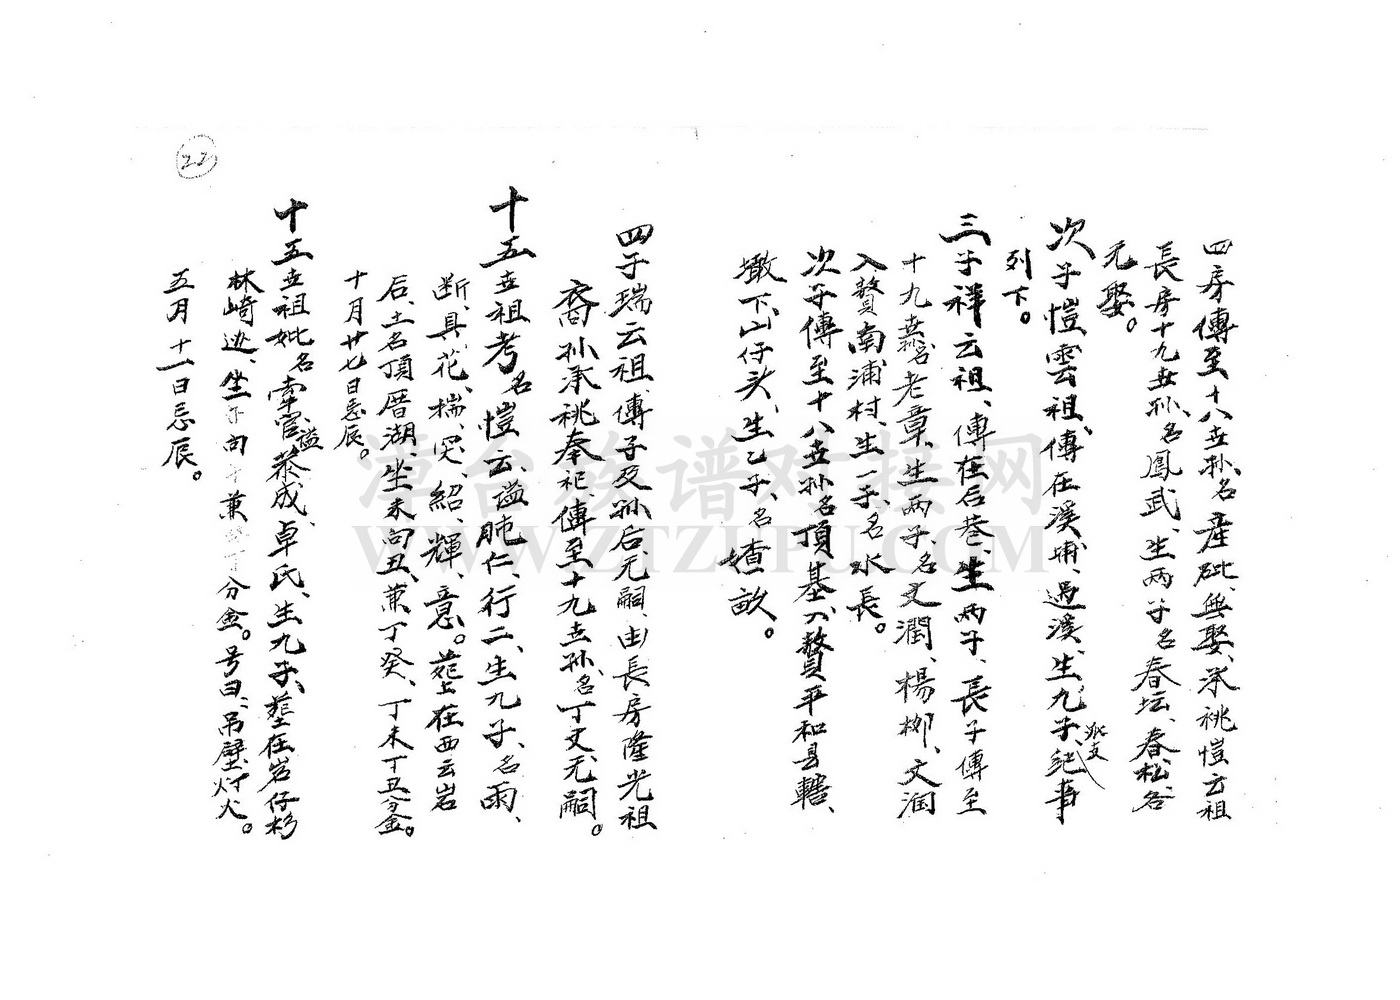 四房傳至十八世孙、名產砒、無娶、承祧愷云祖
長房十九世孙、名鳳武、生两子名春坛、春松各
无娶。
次子愷雲祖、傳在溪埔、過溪、生九子、紀事
派支
列下。
三子祥云祖、傳在后巷、生两子、長子傳至
十九世孙名老章、生两子、名文潤、楊柳、文润
入贅南浦村、生一子、名水長。
次子傳至十八世孙名頂基、入贅平和县轄、
墩下、山仔头、生乙子、名 敏。
四子瑞云祖、傳子及孙后、无嗣、由長房隆光祖
裔孙承祧奉祀、傳至十九世孙、名丁文、无嗣。
十五世祖考名愷云、謚肫仁、行二、生九子、名雨、
断、具、花、檽、突、紹、輝、意。葬在西云岩
后、土名頂厝湖、坐未向丑、兼丁癸、丁未丁丑分金。
十月廿七日忌辰。
十五世祖妣名牵官、謚恭成、卓氏、生九子、葬在岩仔杉
林崎边、坐 向 兼 丁分金。号曰、吊壁灯火。
五月十一日忌辰。
22
漳台族谱对接网
WWW.ZTZUPU.COM